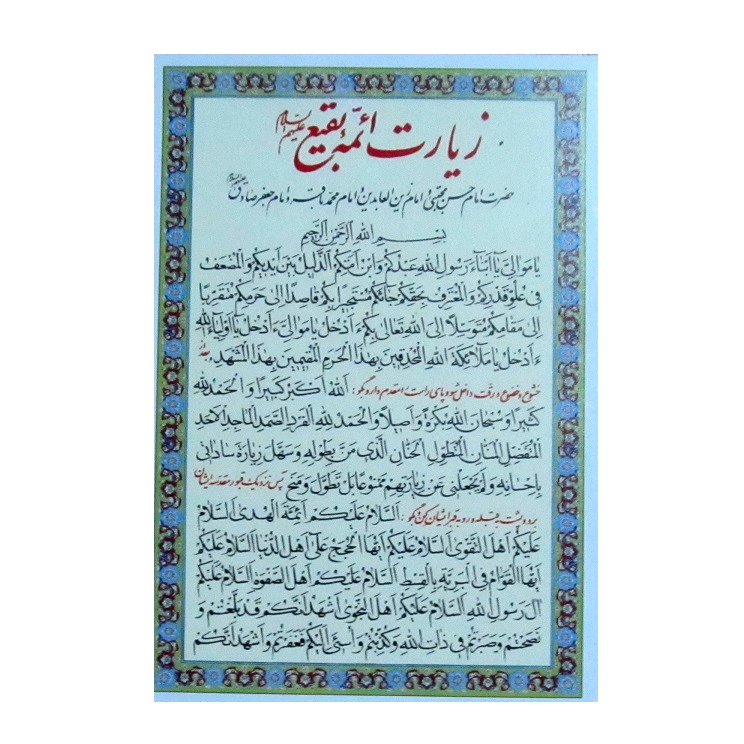 زیارت ائمهٔ بقیع علیهم السلام
حضرت امام حسن مجتبی و امام زین العابدین و امام محمد باقر و امام جعفر صادق علیهم السلام
بِسْمِ اللهِ الرَّحْمٰنِ الرَّحِيمِ
يا مَوالِيَّ يا اَبْناءَ رَسُولِ اللهِ عَبْدُكُمْ وَابْنُ اَمَتِكُمُ الذَّليلُ بَيْنَ اَيْديكُمْ وَالْمُضْعِفُ
في عُلُوِّ قَدْرِكُمْ وَالْمُعْتَرِفُ بِحَقِّكُمْ جائَكُمْ مُسْتَجيراً بِكُمْ قاصِداً اِلى حَرَمِكُمْ مُتَقَرِّباً
اِلى مَقامِكُمْ مُتَوَسِّلاً اِلَى اللهِ تَعالى بِكُمْ ءَاَدْخُلُ يا مَوالِيَّ ءَاَدْخُلُ يا اَوْلِياءَ اللهِ
ءَاَدْخُلُ يا مَلائِكَةَ اللهِ الْمُحْدِقينَ بِهذَا الْحَرَمِ الْمُقيمينَ بِهذَا الْمَشْهَدِ، بعد از
خشوع و خضوع و رقت داخل شو و پای راست را مقدم دار و بگو: اَللهُ اَكْبَرُ كَبيراً وَ الْحَمْدُ لِلّهِ
كَثيراً وَ سُبْحانَ اللهِ بُكْرَةً وَ اَصيلاً وَ الْحَمْدُ لِلّهِ الْفَرْدِ الصَّمَدِ الْماجِدِ الْاَحَدِ
الْمُتَفَضِّلِ الْمَنّانِ الْمُتَطَوِّلِ الْحَنّانِ الَّذي مَنَّ بِطَوْلِهِ وَ سَهَّلَ زِيارَةَ ساداتي
بِاِحْسانِهِ وَ لَمْ يَجْعَلْني عَنْ زِيارَتِهِمْ مَمْنُوعاً بَلْ تَطَوَّلَ وَ مَنَحَ پس نزدیک قبور مقدسه ایشان
برو و پشت به قبله و رو به قبر ایشان کن و بگو: اَلسَّلامُ عَلَيْكُمْ اَئِمَّةَ الْهُدى اَلسَّلامُ
عَلَيْكُمْ اَهْلَ التَّقْوى اَلسَّلامُ عَلَيْكُمْ اَيُّهَا الْحُجَجُ عَلى اَهْلِ الدُّنْيا اَلسَّلامُ عَلَيْكُمْ
اَيُّهَا الْقُوّامُ فِي الْبَرِيَّةِ بِالْقِسْطِ اَلسَّلامُ عَلَيْكُمْ اَهْلَ الصَّفْوَةِ اَلسَّلامُ عَلَيْكُمْ
آلَ رَسُولِ اللهِ اَلسَّلامُ عَلَيْكُمْ اَهْلَ النَّجْوى اَشْهَدُ اَنَّكُمْ قَدْ بَلَّغْتُمْ وَ
نَصَحْتُمْ وَ صَبَرْتُمْ في ذاتِ اللهِ وَ كُذِّبْتُمْ وَ اُسيئَ اِلَيْكُمْ فَغَفَرْتُمْ وَ اَشْهَدُ اَنَّكُمُ